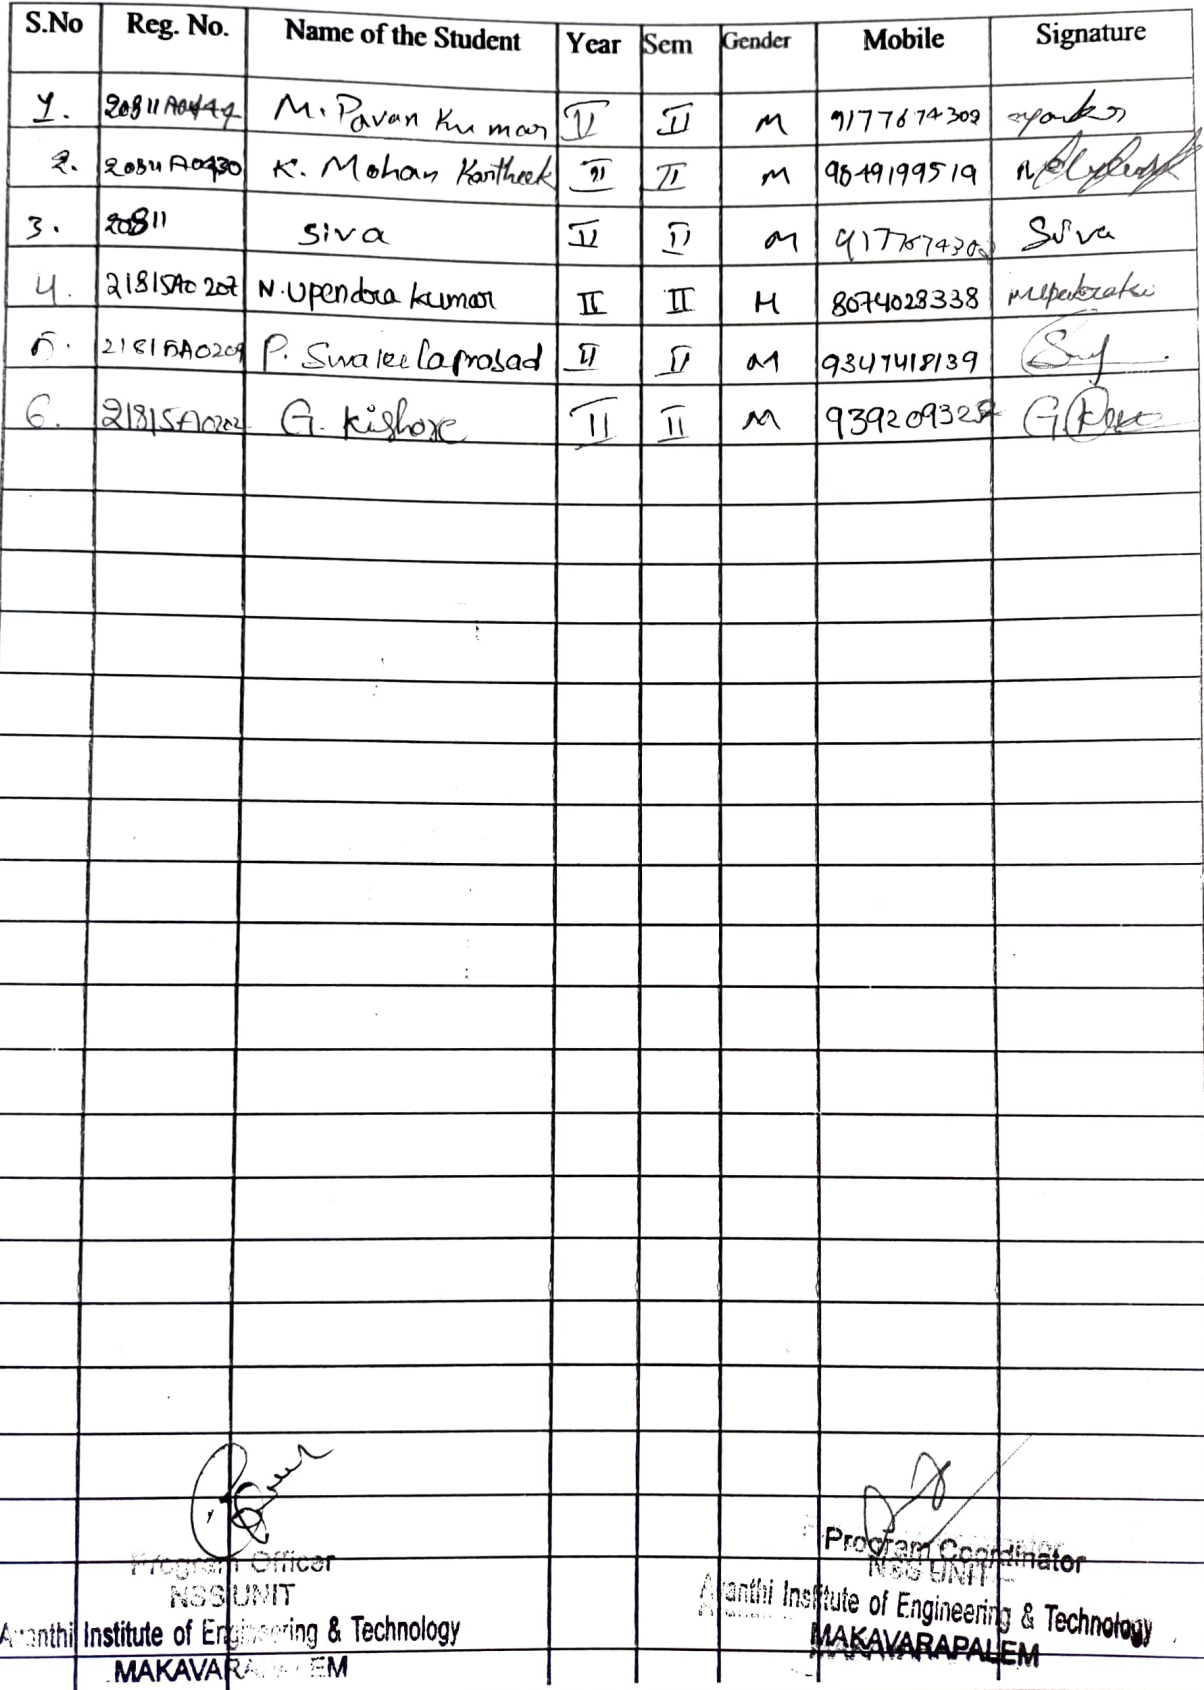 S.No Reg. No. Name of the Student Year Sem Gender Mobile Signature
1. 20811A0444 M. Pavan Kumar II II M 9177674302
2. 20811A0430 K. Mohan Kartheek II II M 9849199519
3. 20811 Siva II II M 9177674302 Siva
4. 21815A0207 N. Upendra Kumar II II M 8074028338
5. 21815A0209 P. II II M 9347418139
6. 21815A0202 G. Kishore II II M
Program Officer
NSS UNIT
Avanthi Institute of Engineering & Technology
MAKAVARAPALEM
Program Coordinator
NSS UNIT
Avanthi Institute of Engineering & Technology
MAKAVARAPALEM